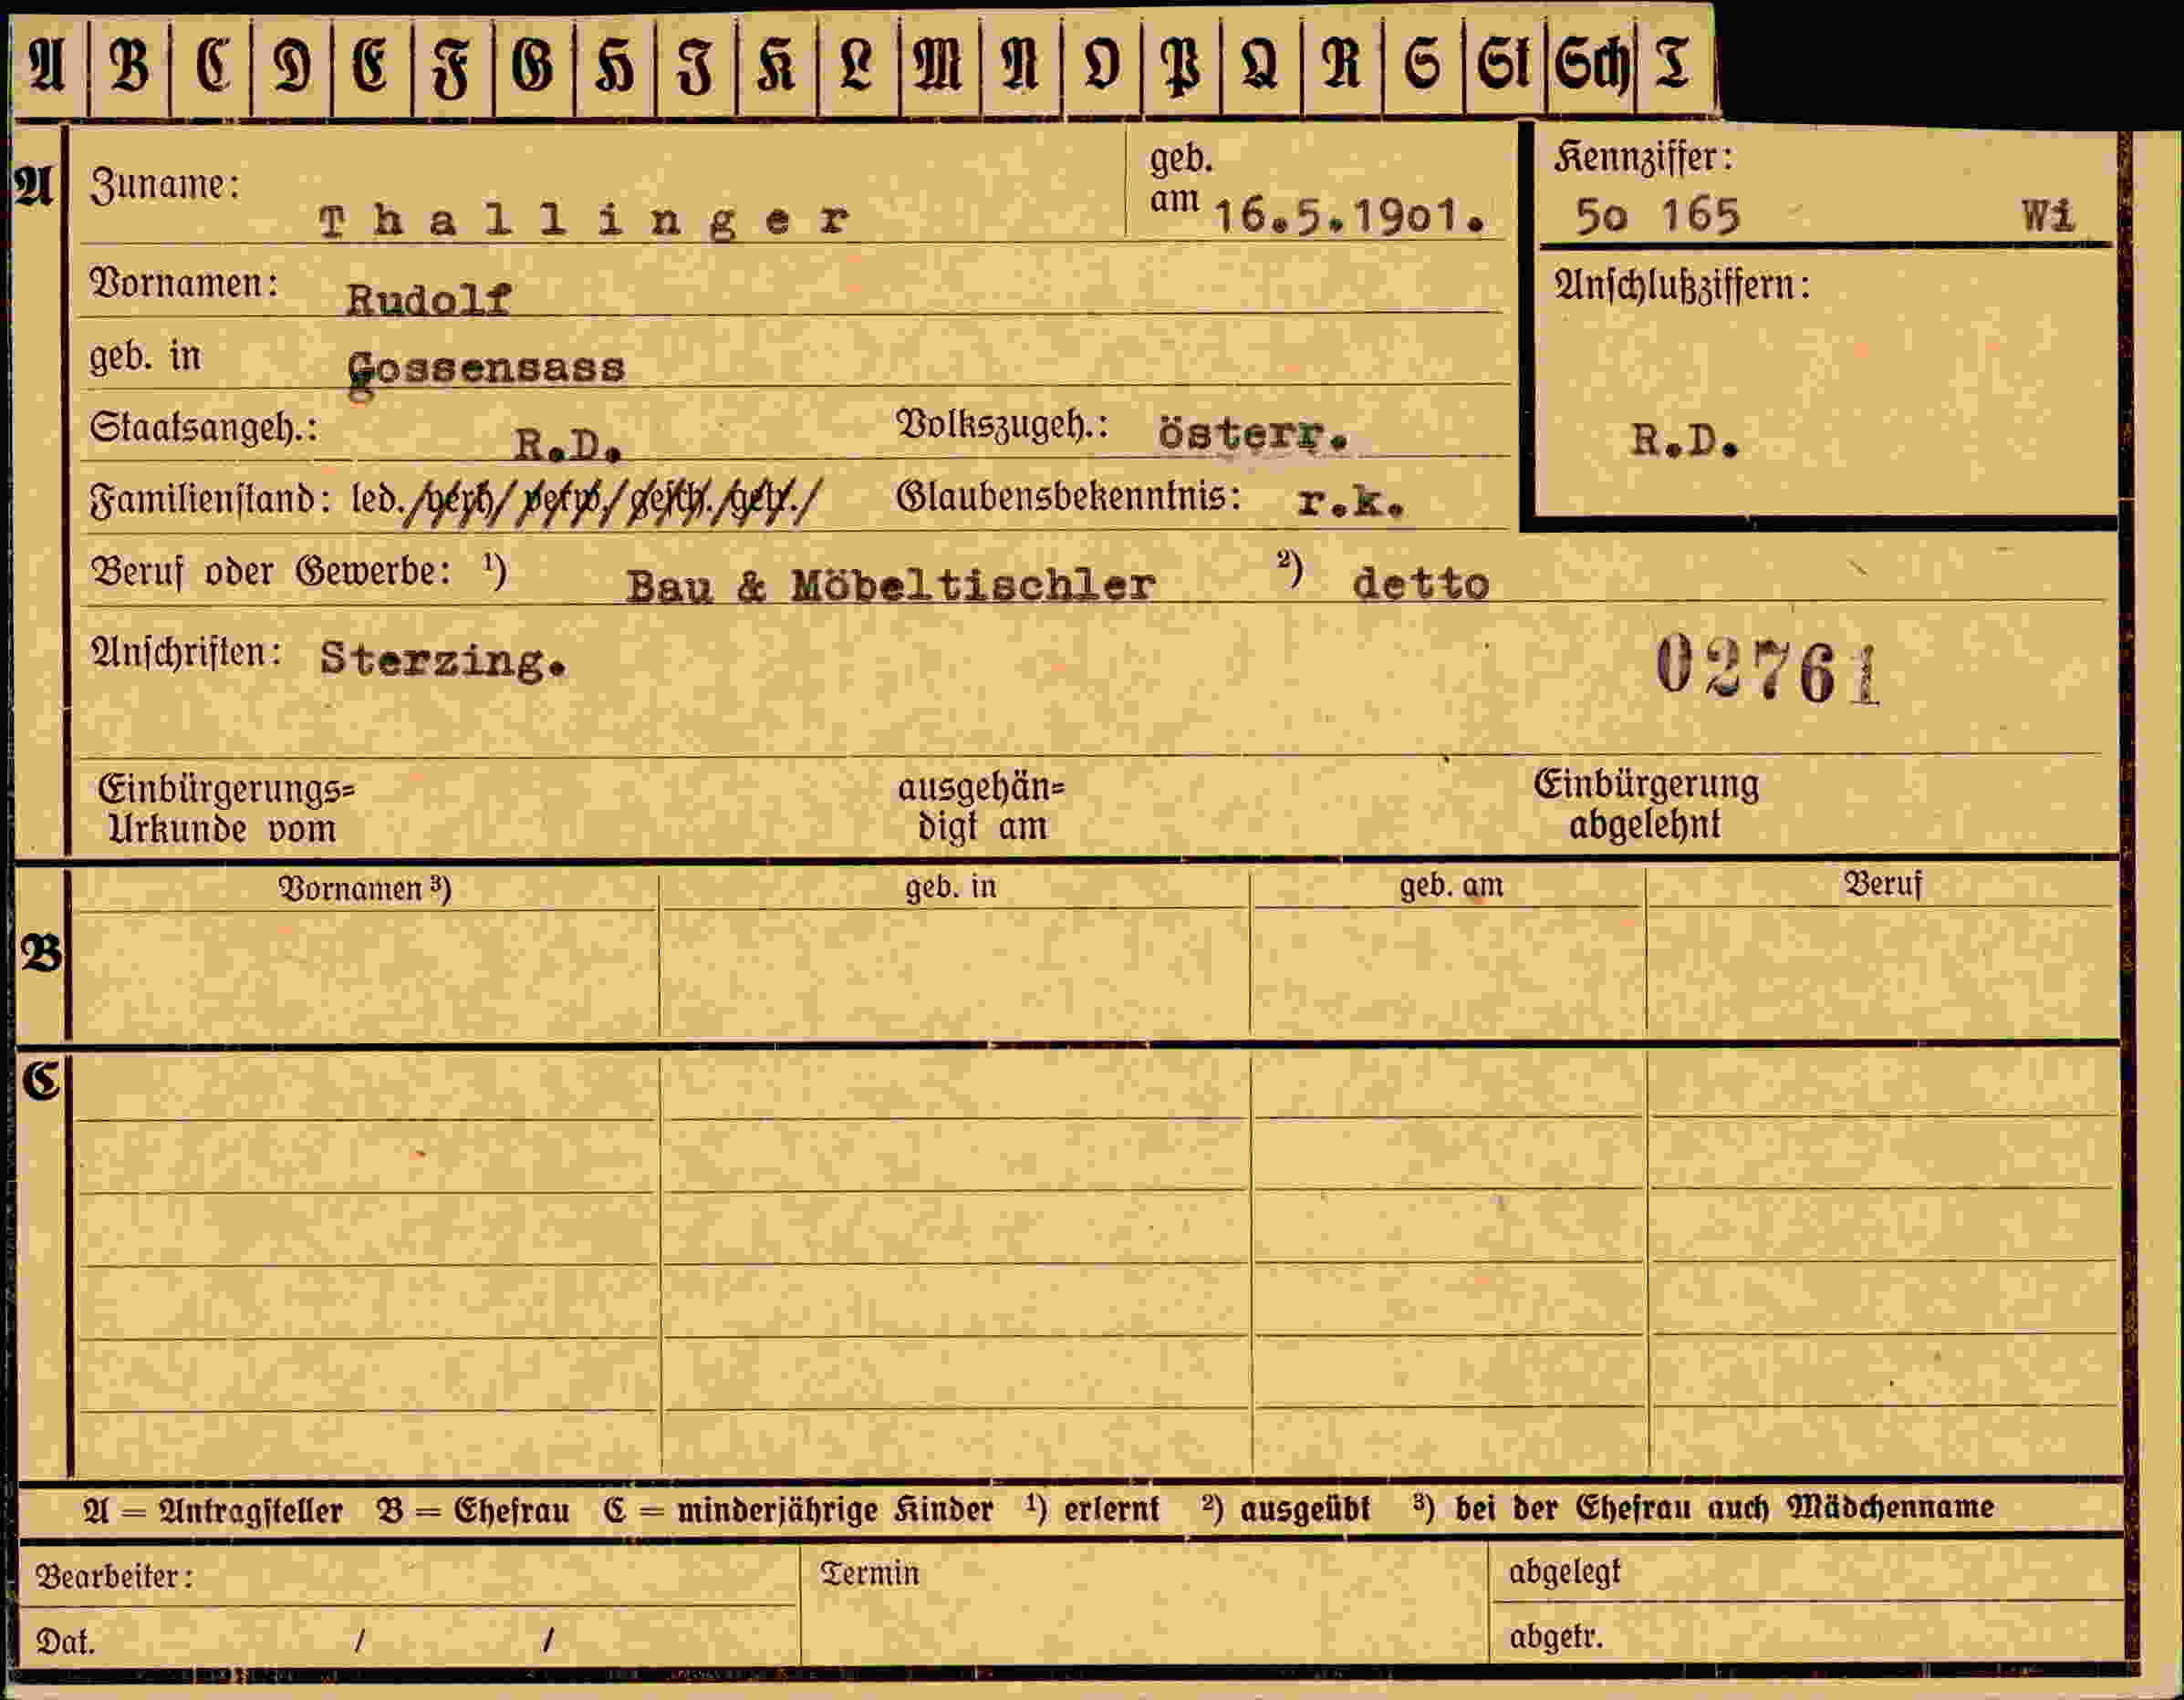 A B C D E F G H I K L M N O P Q R S St Sch T
A Zuname: Thallinger geb. am 16.5.19o1. Kennziffer: 5o 165 Wi
Vornamen: Rudolf Anschlußziffern:
geb. in Gossensass
Staatsangeh.: R.D. Volkszugeh.: österr. R.D.
Familienstand: led./verh/verw./gesch./getr./ Glaubensbekenntnis: r.k.
Beruf oder Gewerbe: ¹) Bau & Möbeltischler ²) detto
Anschriften: Sterzing. 02761
Einbürgerungs= ausgehän= Einbürgerung
Urkunde vom digt am abgelehnt
Vornamen ³) geb. in geb. am Beruf
B
C
A = Antragsteller B = Ehefrau C = minderjährige Kinder ¹) erlernt ²) ausgeübt ³) bei der Ehefrau auch Mädchenname
Bearbeiter: Termin abgelegt
Dat. / / abgetr.